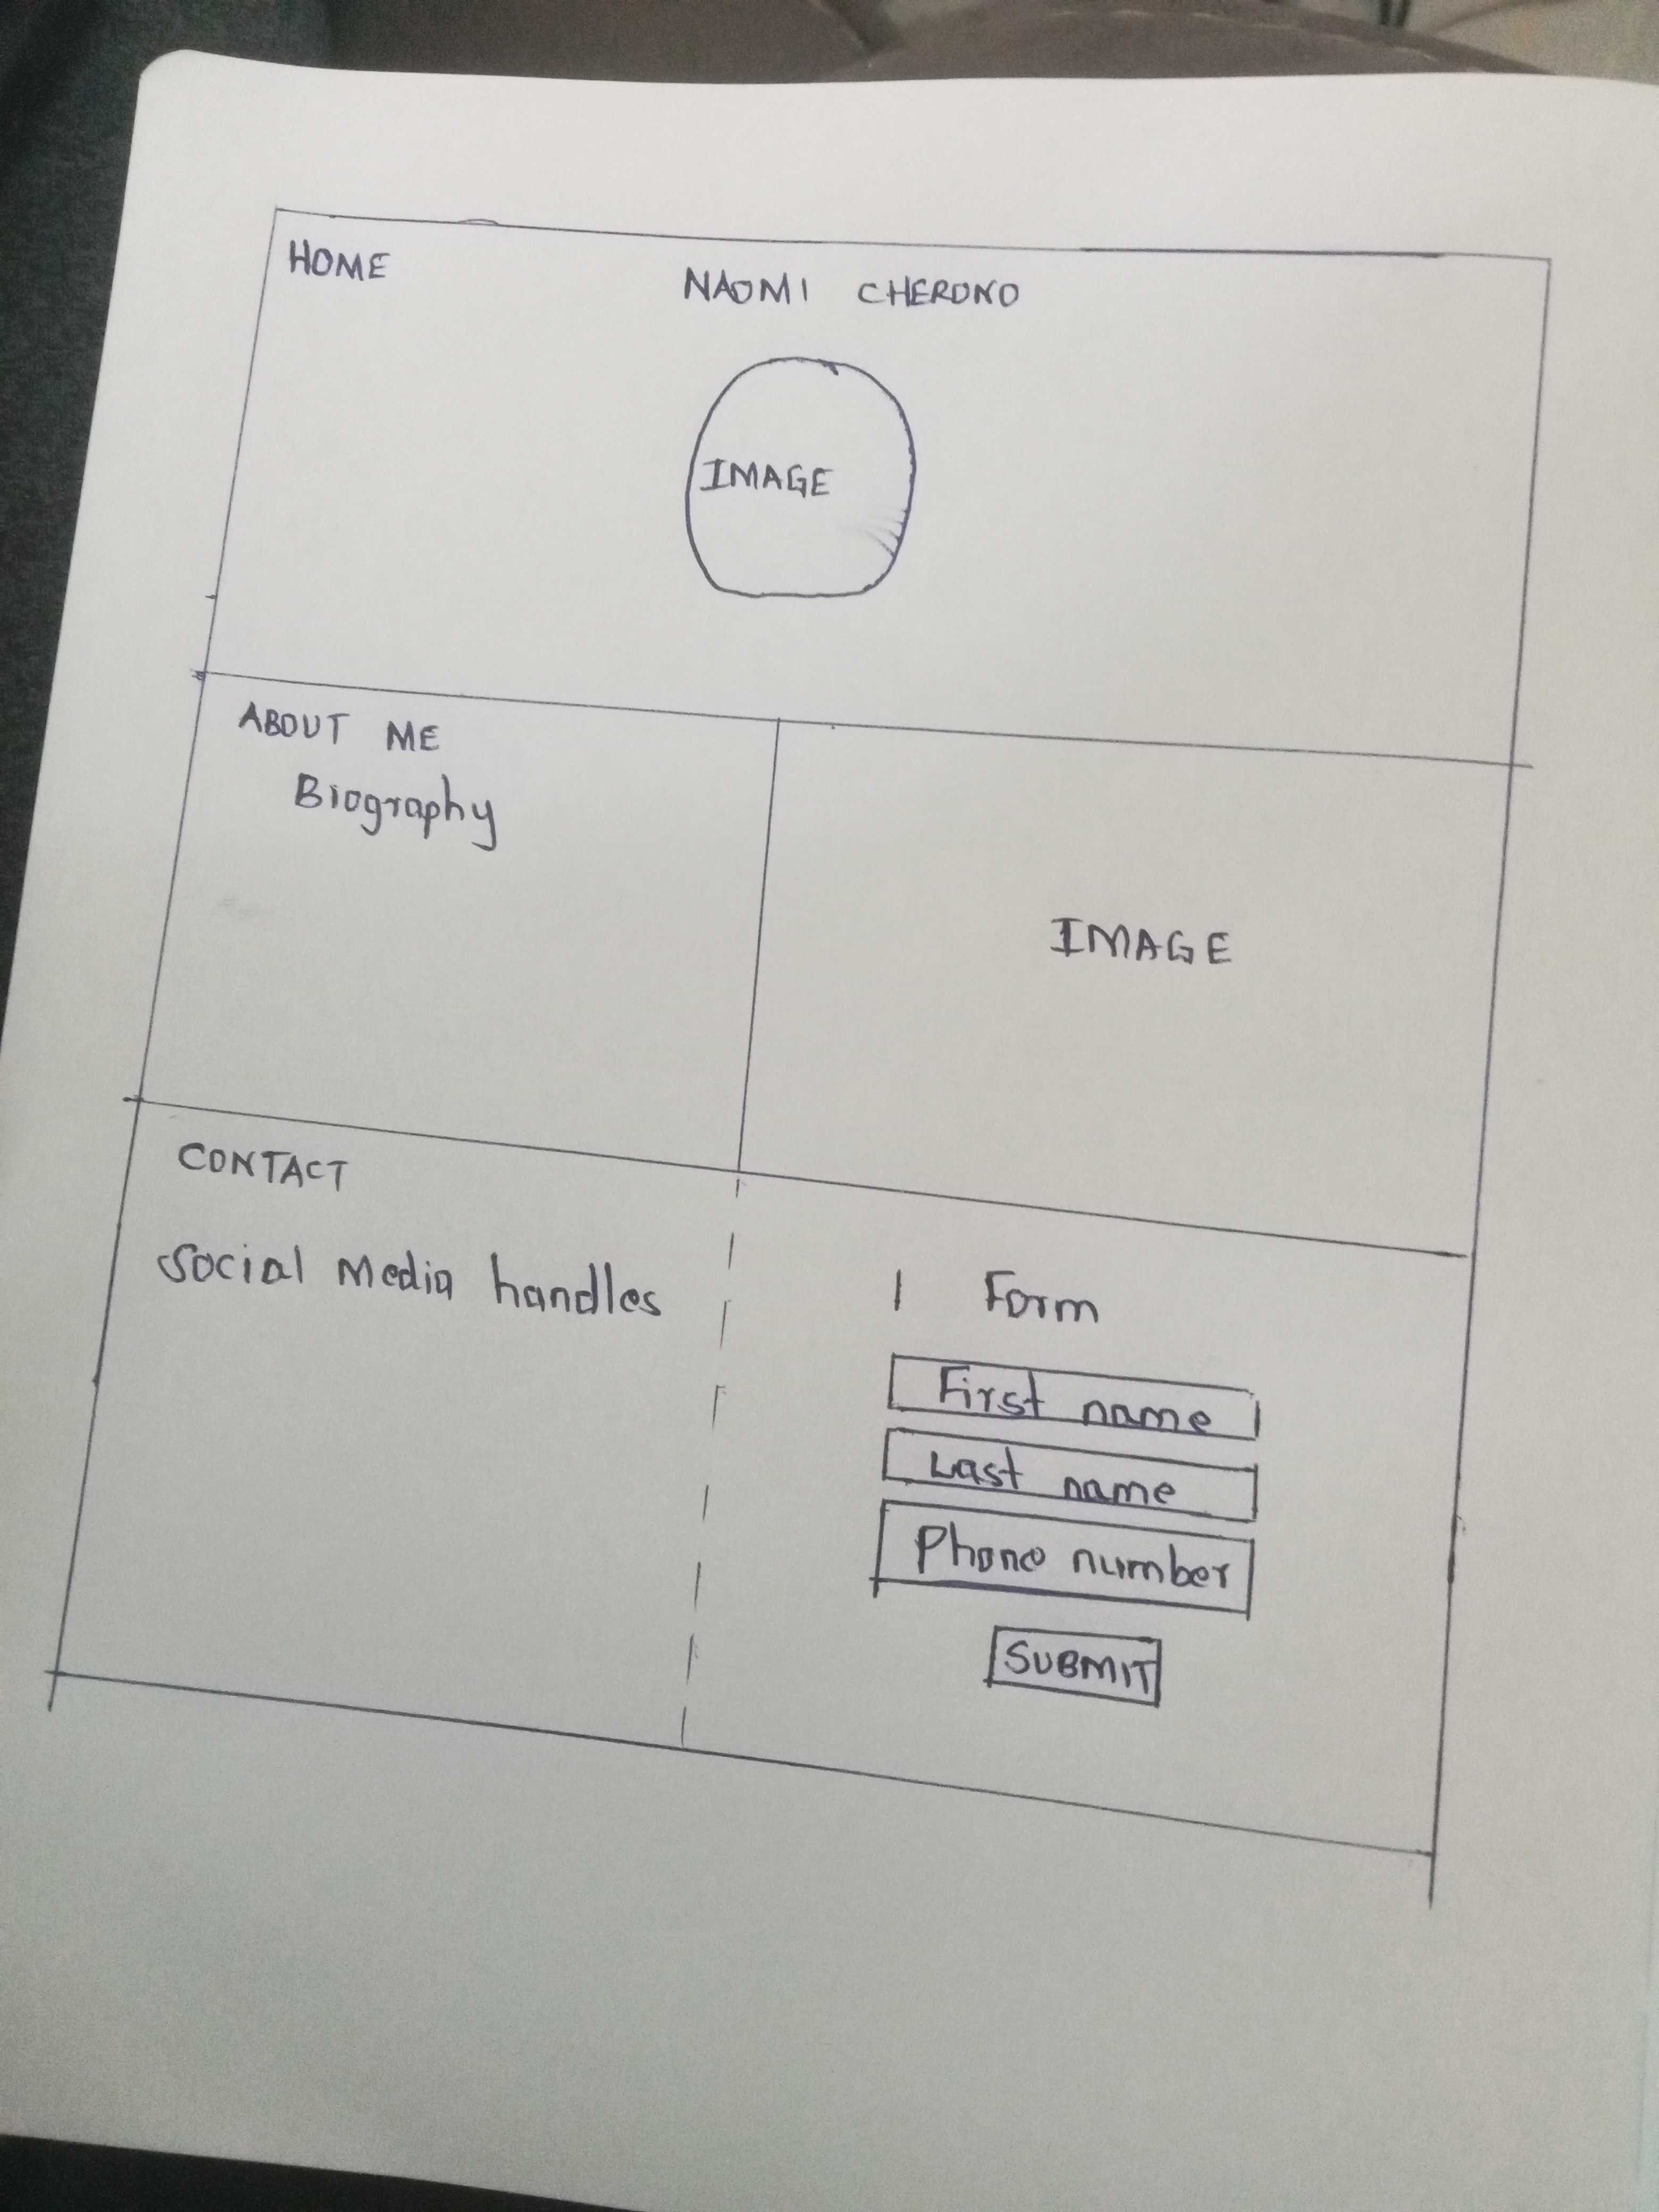 HOME
NAOMI CHERONO
IMAGE
ABOUT ME
Biography
IMAGE
CONTACT
Social Media handles
Form
First name
Last name
Phone number
SUBMIT